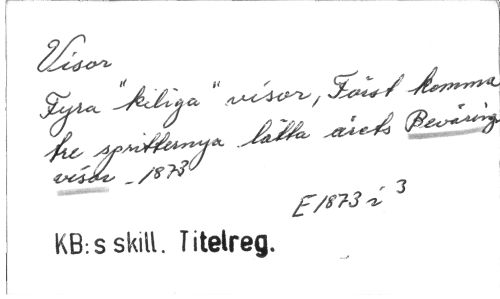 Visor
Fyra "kiliga" visor, Först komma
tre splitternya lätta årets Beväring-
visor - 1873
E 1873 i 3
KB:s skill. Titelreg.